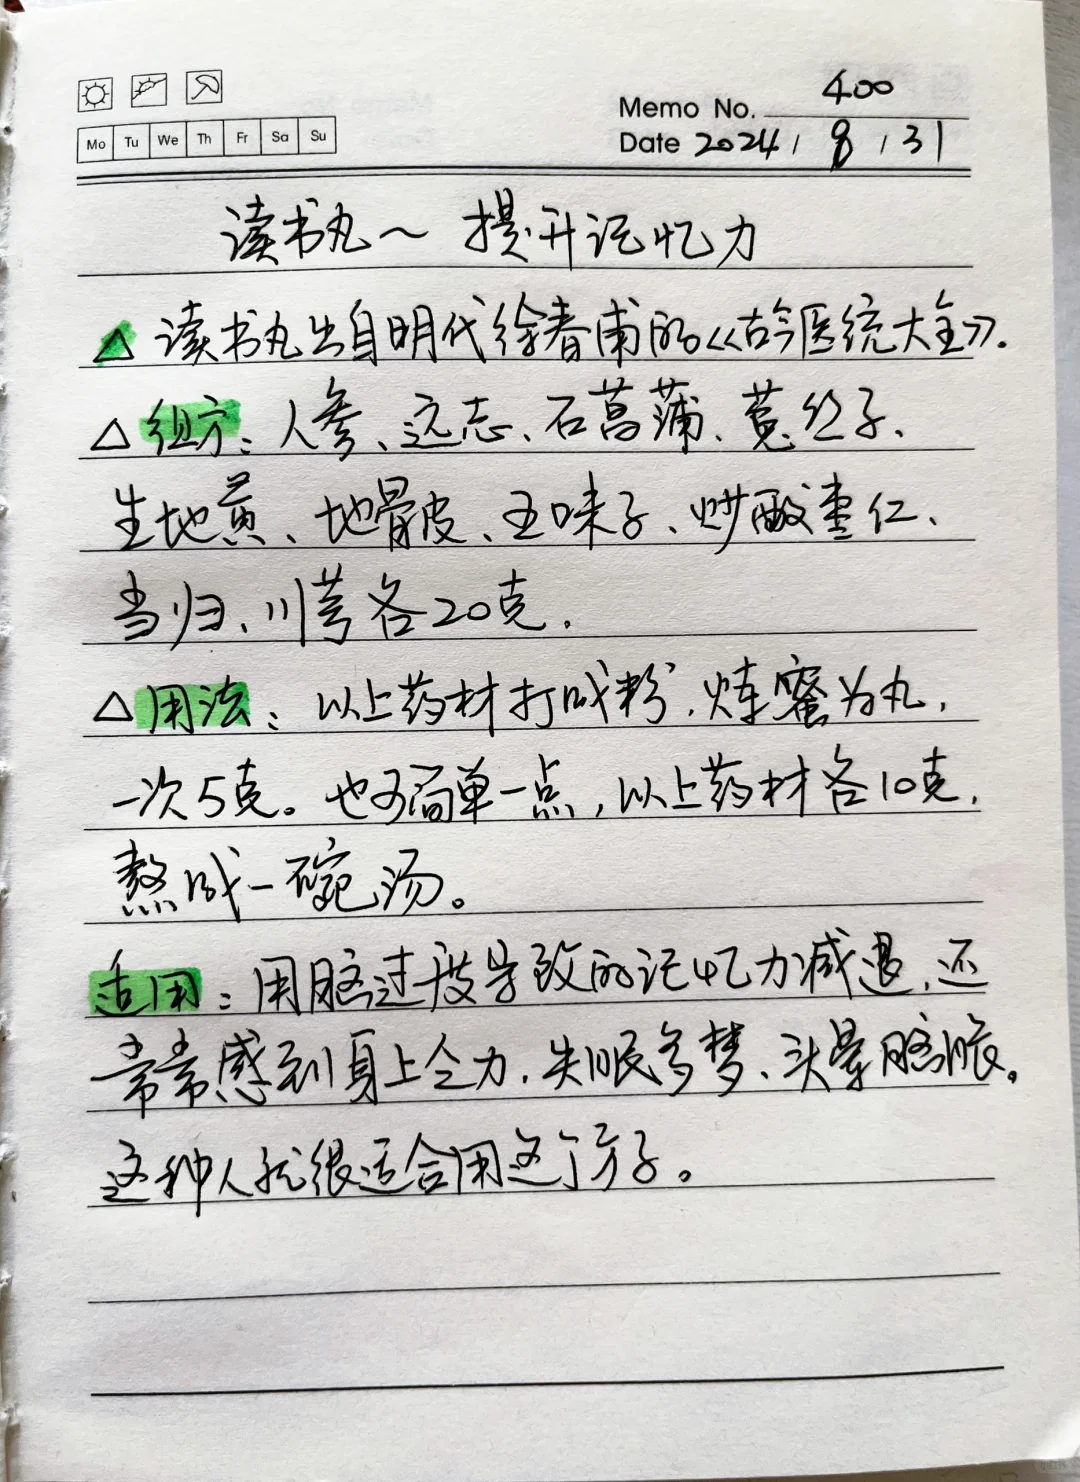 Memo No. 400
Mo Tu We Th Fr Sa Su
Date 2024 / 8 / 31
读书丸～ 提升记忆力
△ 读书丸出自明代徐春甫的《古今医统大全》.
△ 组方：人参、远志、石菖蒲、菟丝子、
生地黄、地骨皮、五味子、炒酸枣仁、
当归、川芎各20克.
△ 用法：以上药材打成粉，炼蜜为丸，
一次5克。也可简单一点，以上药材各10克，
熬成一碗汤。
适用：用脑过度导致的记忆力减退，还
常常感到身上乏力，失眠多梦、头晕脑胀。
这种人就很适合用这个方子。